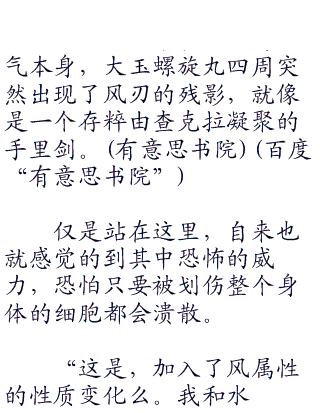 气本身，大玉螺旋丸四周突
然出现了风刃的残影，就像
是一个存粹由查克拉凝聚的
手里剑。(有意思书院)(百度
“有意思书院”)
仅是站在这里，自来也
就感觉的到其中恐怖的威
力，恐怕只要被划伤整个身
体的细胞都会溃散。
“这是，加入了风属性
的性质变化么。我和水